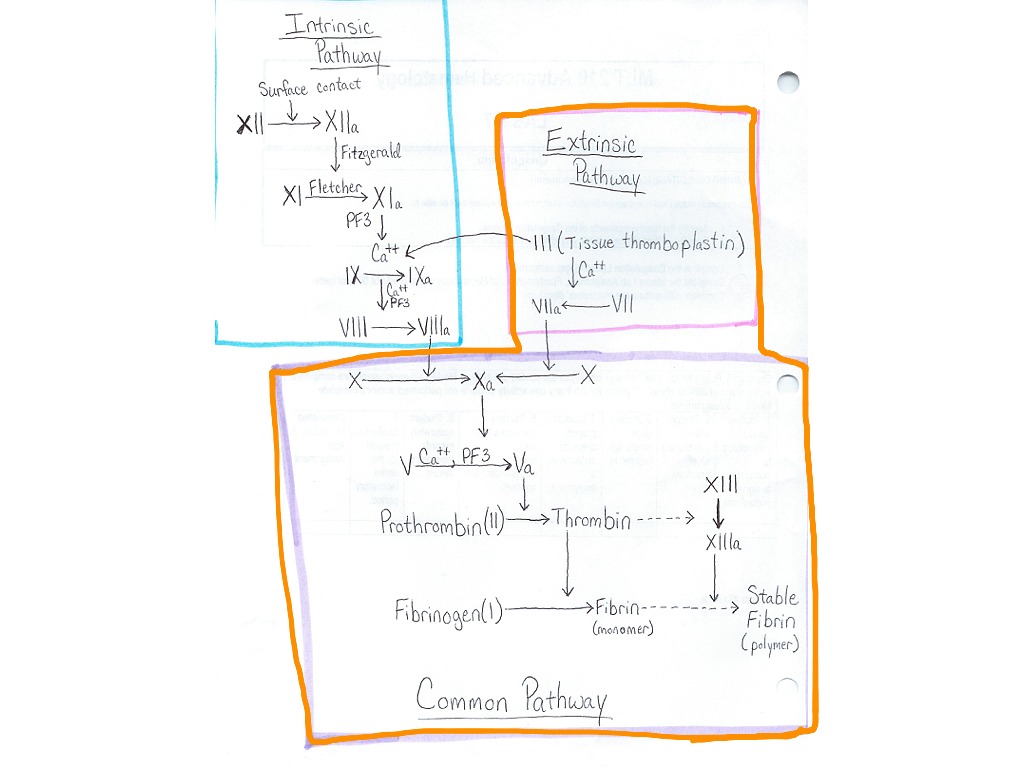 Intrinsic
Pathway
Surface contact
XII XIIa
Fitzgerald
XI Fletcher XIa
PF3
Ca++
IX IXa
Ca++
PF3
VIII VIIIa
Extrinsic
Pathway
III (Tissue thromboplastin)
Ca++
VIIa VII
X Xa X
V Ca++, PF3 Va
XIII
Prothrombin (II) Thrombin
XIIIa
Fibrinogen (I) Fibrin
(monomer)
Stable
Fibrin
(polymer)
Common Pathway